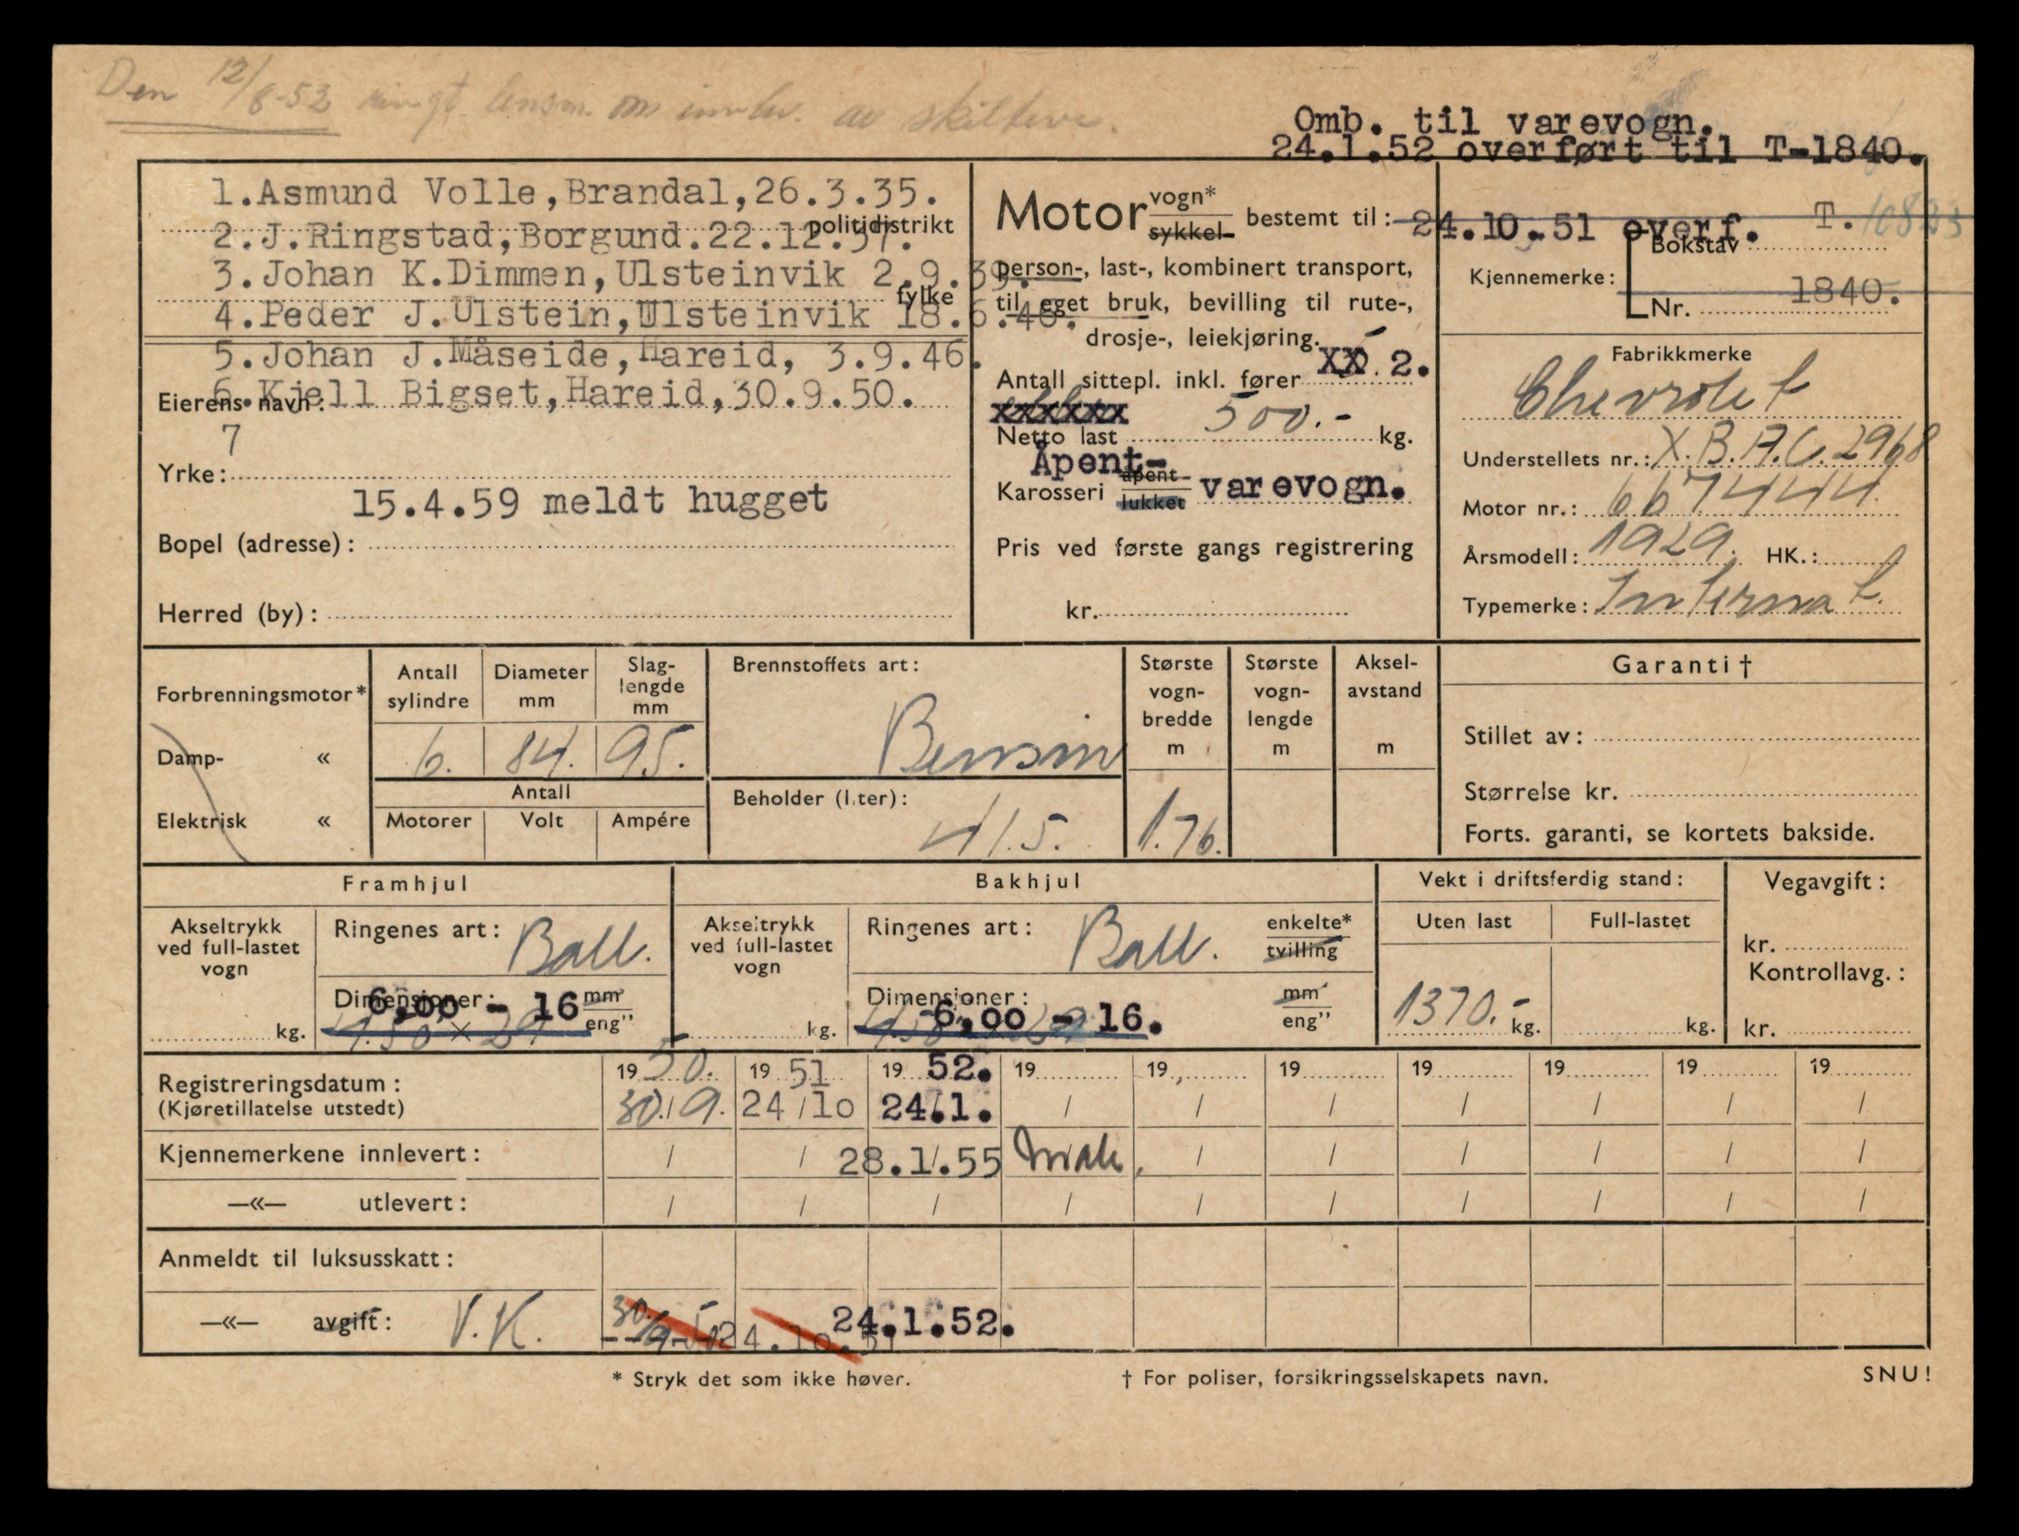 Den 12/8-53 ringt lensm. om innlev. av skiltene.
Omb. til varevogn.
24.1.52 overført til T-1840.
1.Asmund Volle,Brandal,26.3.35.
politidistrikt
2.J.Ringstad,Borgund.22.12.37.
3.Johan K.Dimmen,Ulsteinvik 2.9.39.
fylke
4.Peder J.Ulstein,Ulsteinvik 18.6.40.
5.Johan J.Måseide,Hareid, 3.9.46.
6.Kjell Bigset,Hareid,30.9.50.
Eierens navn:
7
Yrke:
15.4.59 meldt hugget
Bopel (adresse):
Herred (by):
Motor vogn* sykkel- bestemt til:
person-, last-, kombinert transport,
til eget bruk, bevilling til rute-,
drosje-, leiekjøring.
Antall sittepl. inkl. fører XX 2.
xxxxxx
Netto last 500.- kg.
Åpent-
Karosseri åpent- lukket varevogn.
Pris ved første gangs registrering
kr.
24.10.51 overf. T. 10823
Bokstav
Kjennemerke:
Nr. 1840.
Fabrikkmerke
Chevrolet
Understellets nr.: X.B.A.C.2968
Motor nr.: 667444.
Årsmodell: 1929. HK.:
Typemerke: Internat.
Forbrenningsmotor*
Damp- «
Elektrisk «
Antall sylindre
6.
Diameter mm
84.
Slag-lengde mm
95.
Antall
Motorer Volt Ampére
Brennstoffets art:
Bensin
Beholder (liter):
41.5.
Største vogn-bredde m
1.76.
Største vogn-lengde m
Aksel-avstand m
Garanti †
Stillet av:
Størrelse kr.
Forts. garanti, se kortets bakside.
Framhjul
Akseltrykk ved full-lastet vogn
kg.
Ringenes art: Ball.
Dimensjoner: mm eng"
6,00 - 16
4.50 x 29
Bakhjul
Akseltrykk ved full-lastet vogn
kg.
Ringenes art: Ball. enkelte* tvilling
Dimensjoner: mm eng"
6,00 - 16.
Vekt i driftsferdig stand:
Uten last Full-lastet
1370.- kg. kg.
Vegavgift:
kr.
Kontrollavg.:
kr.
Registreringsdatum: 1950. 1951 19 52. 19 19 19 19 19 19 19
(Kjøretillatelse utstedt) 30./9. 24/10 24.1. / / / / / / /
Kjennemerkene innlevert: / / 28.1.55 / / / / / /
—«— utlevert: / / / / / / / / / /
Anmeldt til luksusskatt:
—«— avgift: V.K. 30/9-50 24.10.51 24.1.52.
* Stryk det som ikke høver.
† For poliser, forsikringsselskapets navn.
SNU!